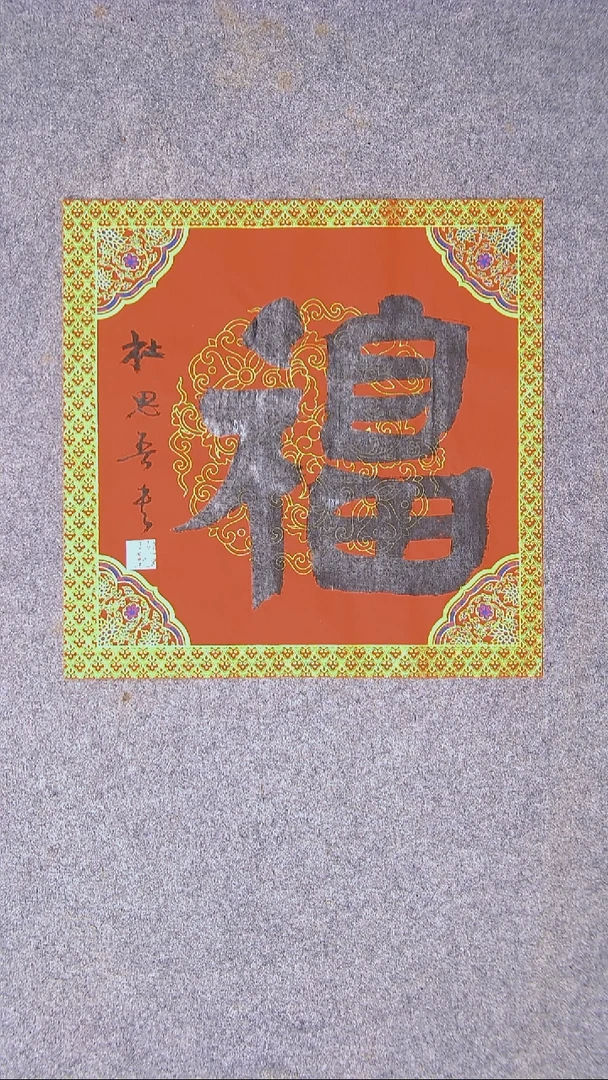 福
杜思吾书